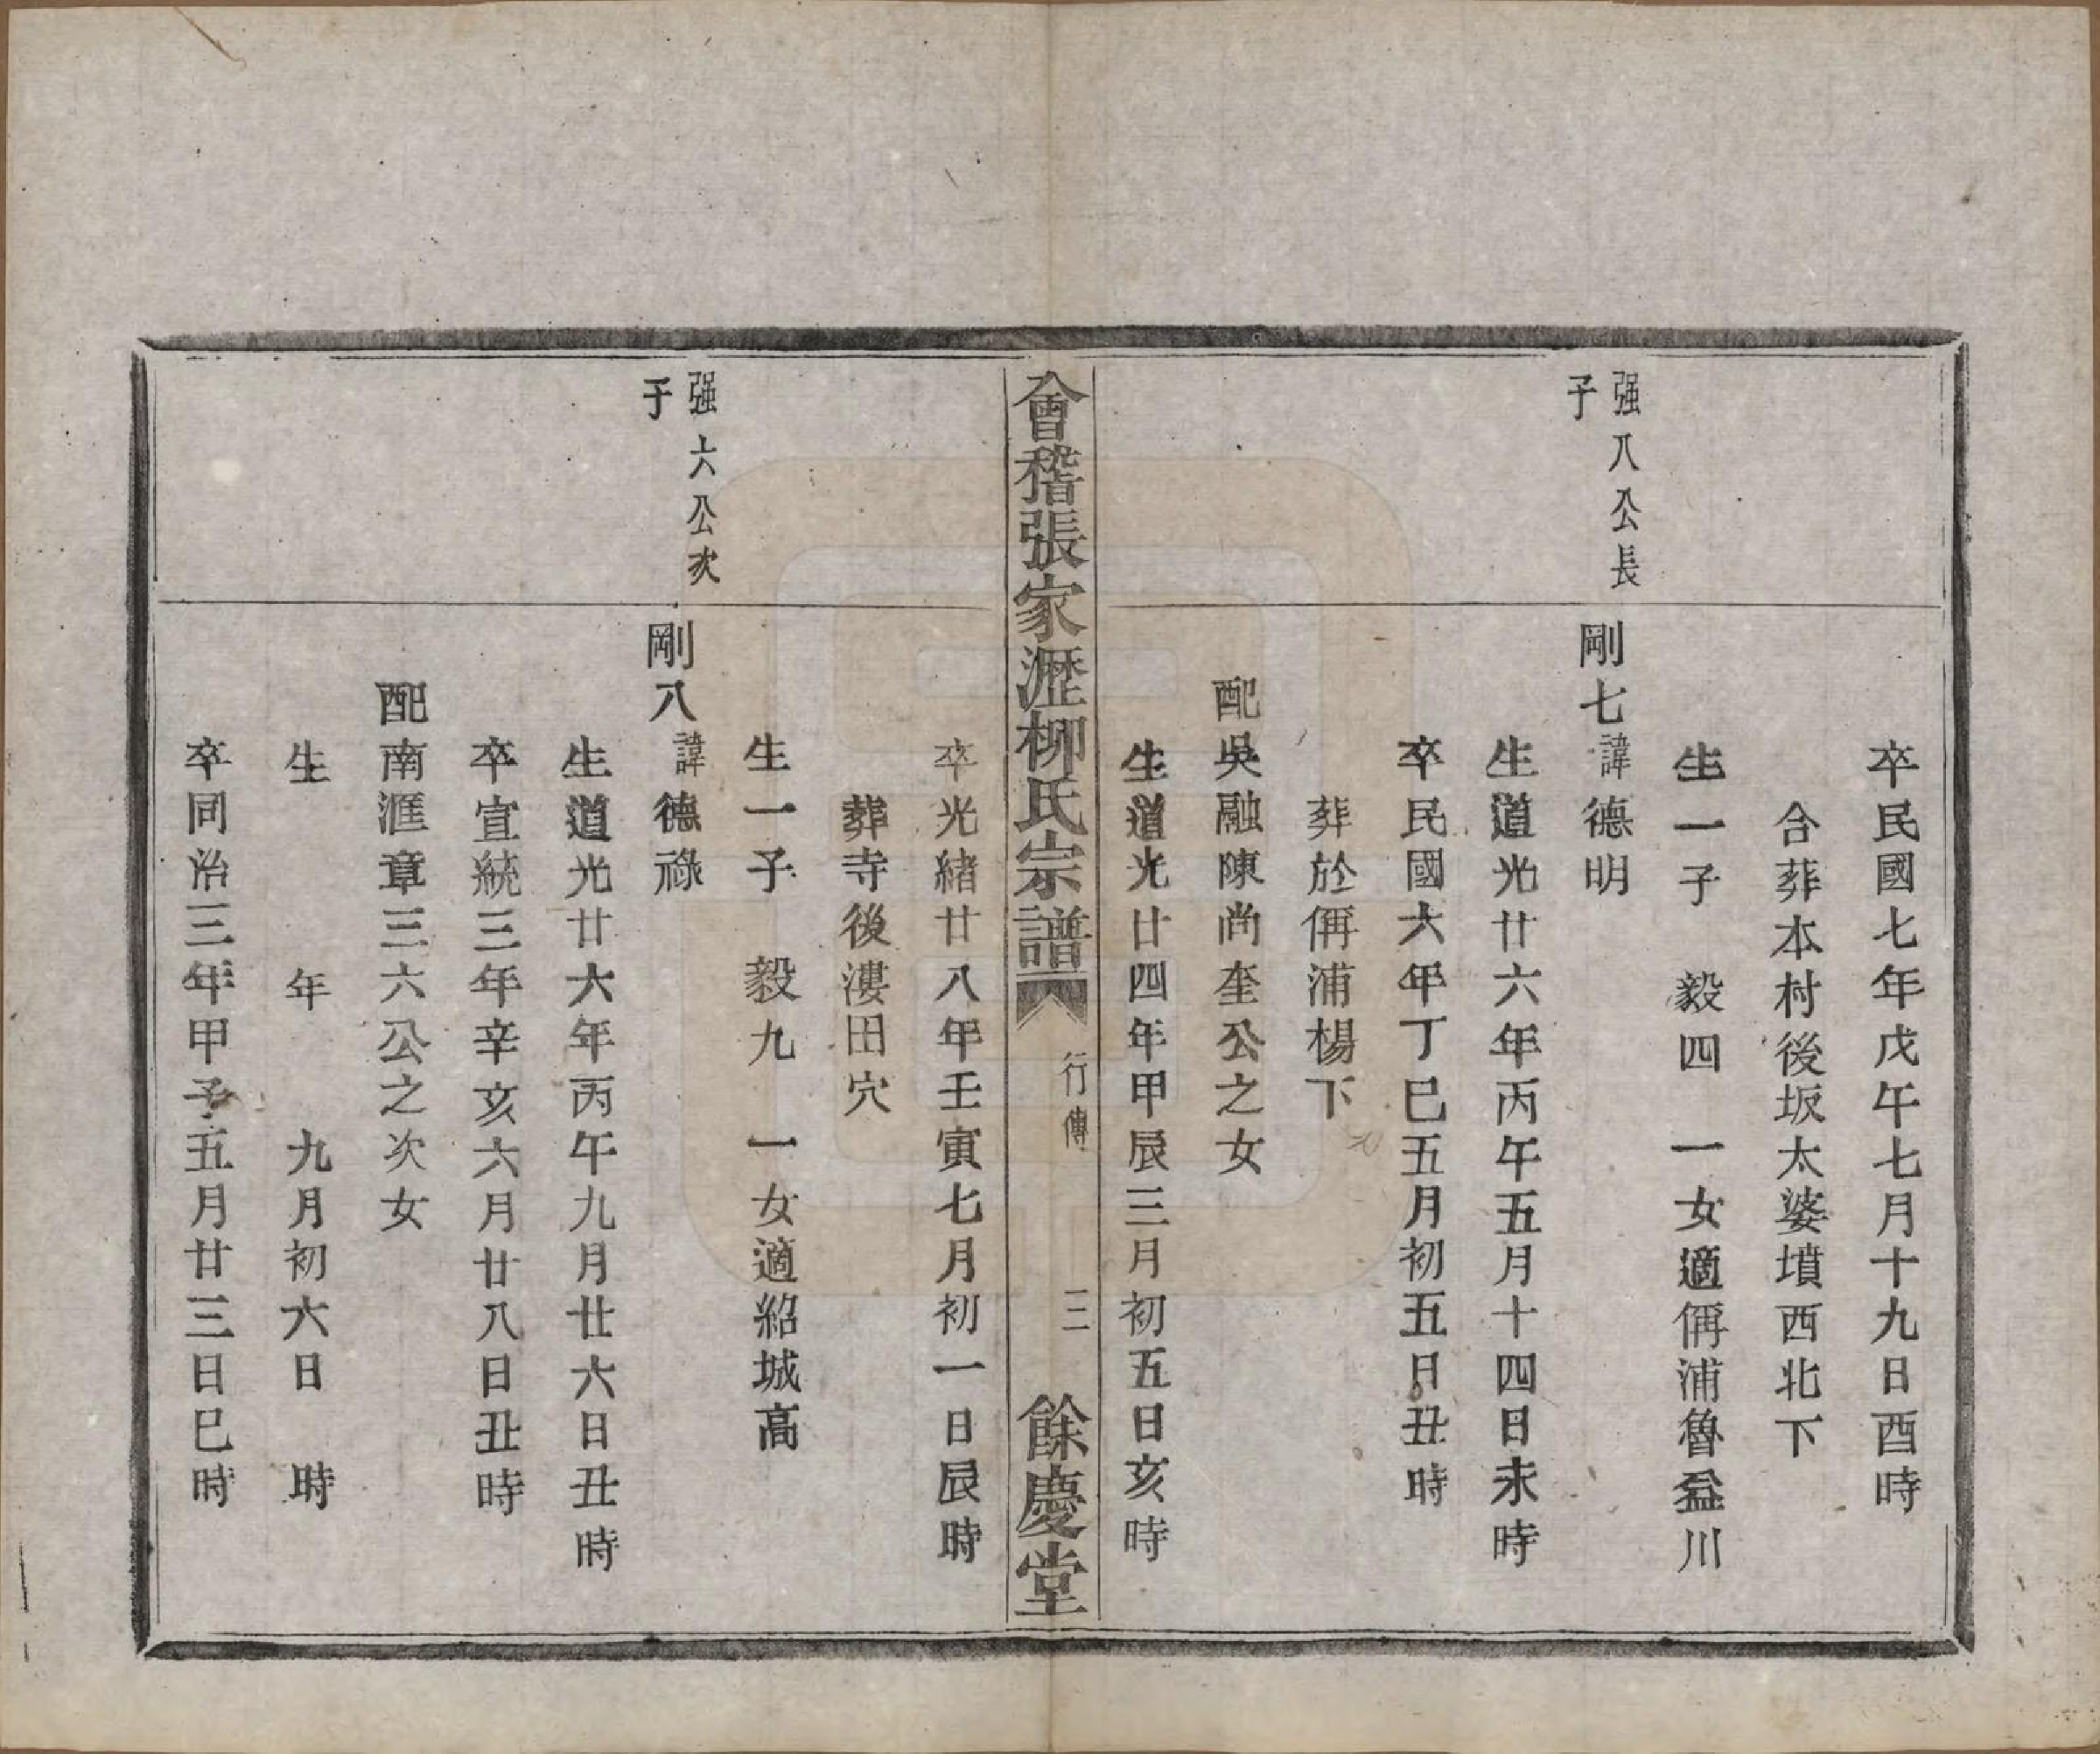 卒民國七年戊午七月十九日酉時
合葬本村後坂太婆墳西北下
生一子　毅四　一女適偁浦魯益川
强八公長
子
剛七諱德明
生道光廿六年丙午五月十四日未時
卒民國六年丁巳五月初五日丑時
葬於偁浦楊下
配吳融陳尚奎公之女
生道光廿四年甲辰三月初五日亥時
會稽張家瀝柳氏宗譜　行傳　三　餘慶堂
卒光緒廿八年壬寅七月初一日辰時
葬寺後漊田穴
生一子　毅九　一女適紹城高
强六公次
子
剛八諱德祿
生道光廿六年丙午九月廿六日丑時
卒宣統三年辛亥六月廿八日丑時
配南滙章三六公之次女
生　年　九月初六日　時
卒同治三年甲子五月廿三日巳時